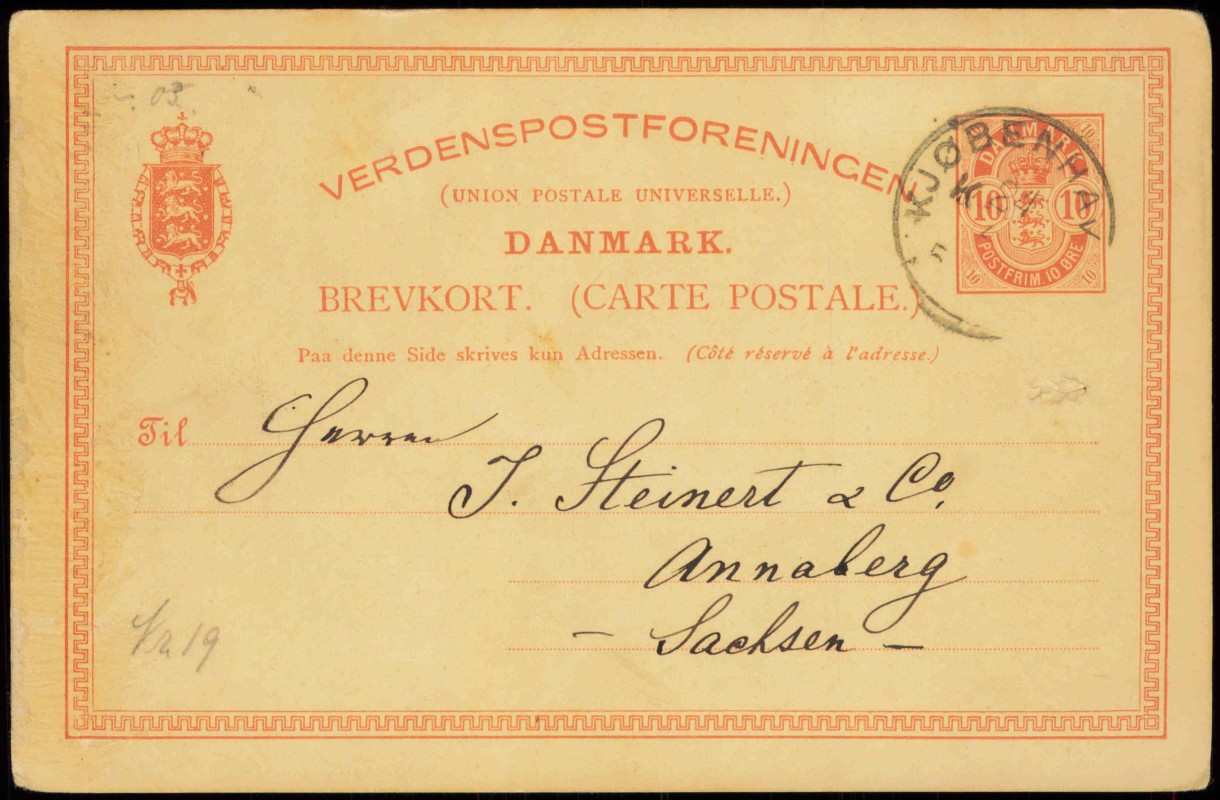 03
VERDENSPOSTFORENINGEN
(UNION POSTALE UNIVERSELLE.)
DANMARK.
BREVKORT. (CARTE POSTALE.)
Paa denne Side skrives kun Adressen. (Côté réservé à l'adresse.)
KJØBENHAV
K
DANMARK
10
10 10
POSTFRIM. 10 ØRE
10 10
Til Herren
J. Steinert & Co.
Annaberg
– Sachsen –
19